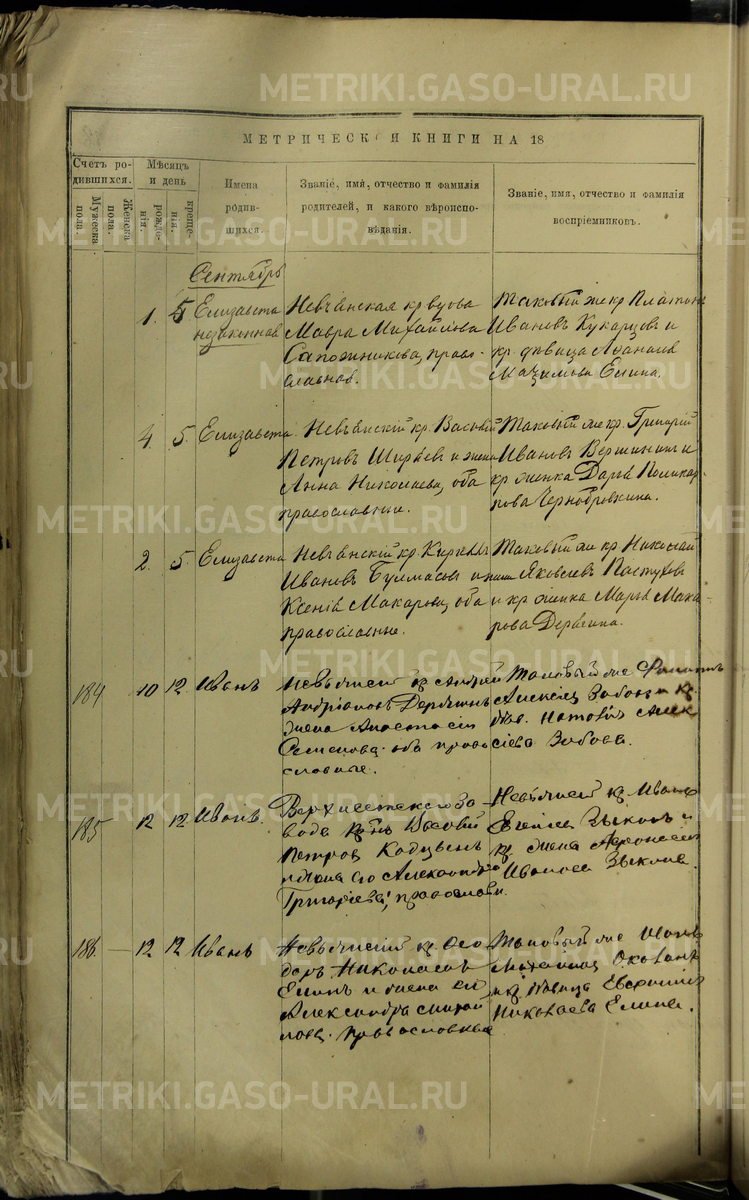 METRIKI.GASO-URAL.RU
МЕТРИЧЕСКОЙ КНИГИ НА 18
Счетъ ро-
дившихся.
Мужеска пола.
Женска пола.
Мѣсяцъ
и день
рожде-
нія.
креще-
нія.
Имена
родив-
шихся.
Званіе, имя, отчество и фамилія
родителей, и какого вѣроиспо-
вѣданія.
Званіе, имя, отчество и фамилія
воспріемниковъ.
Сентябрь
1. 5. Елизавета
незаконная
Невьянская кр. вдова
Мавра Михайлова
Сапожникова, право-
славная.
Таковый же кр. Платонъ
Ивановъ Кукарцовъ и
кр. дѣвица
Максимова Елина.
4. 5. Елизавета
Невьянскій кр. Василій
Петровъ Ширяевъ и жена
Анна Николаева, оба
православные.
Таковый же кр. Григорій
Ивановъ Вершининъ и
кр. женка Дарья Поликар-
пова Чернобровкина.
2. 5. Елизавета
Невьянскій кр. Кириллъ
Ивановъ и жена
Ксенія Макарова, оба
православные.
Таковый же кр. Николай
Яковлевъ Пастуховъ
и кр. женка Марья Мака-
рова Дерягина.
184 10 12 Иванъ
Невьянскій кр. Андрей
Андріановъ
жена Анастасія
Семенова оба право-
славные.
Таковый же
Алексѣевъ и кр.
дѣв. Наталія Алек-
сѣева
185 12 12 Иванъ.
Верхисетскаго за-
вода Василій
Петровъ
и жена его Александра
Григоріева, православн.
Невьянскій кр. Иванъ
Зыковъ и
кр. жена
Иванова Зыкова.
186. — 12 12 Иванъ
Невьянскій кр. Ѳео-
доръ Николаевъ
Елинъ и жена его
Александра
православные
Таковый же
и кр. дѣвица
Николаева Елина.